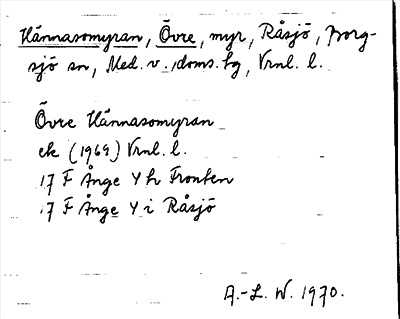 Hännasomyran, Övre, myr, Råsjö, Borg-
sjö sn, Med. v. doms. bg, Vrnl. l.
Övre Hännasomyran
ek (1969) Vrnl. l.
17 F Ånge Y h Fronten
17 F Ånge Y i Råsjö
A.-L. W. 1970.